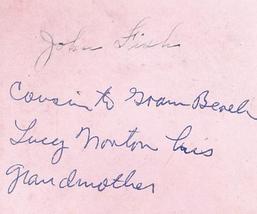 John Fish
Cousin to Gram Beach
Lucy Norton his
grandmother